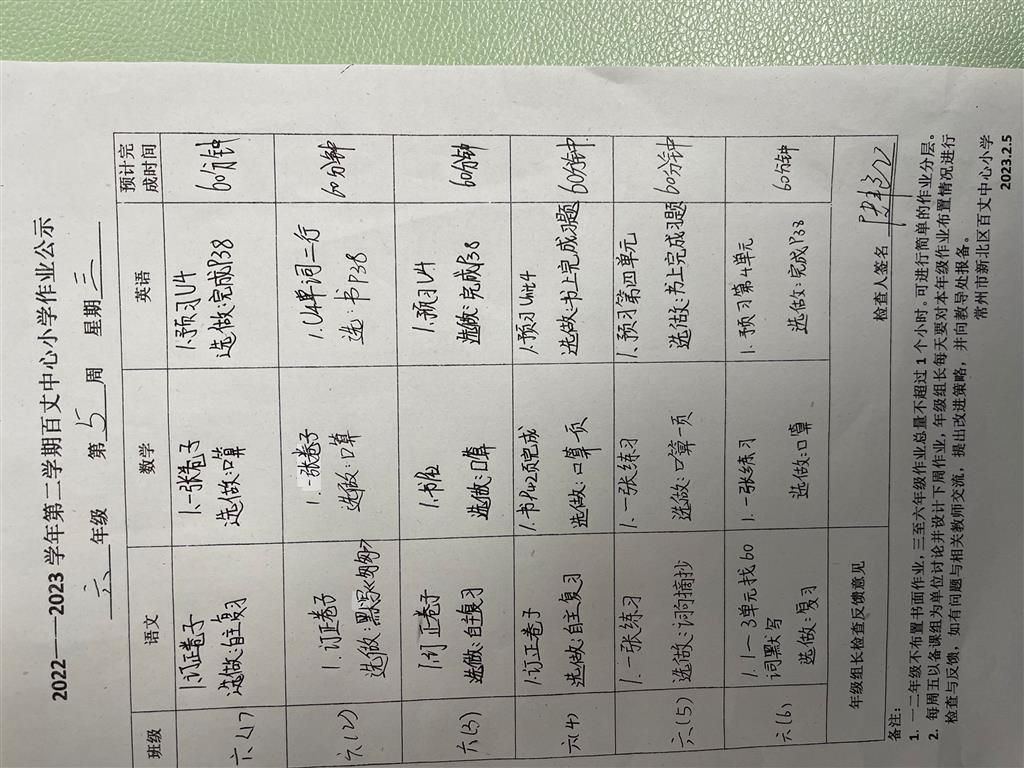 2022——2023 学年第二学期百丈中心小学作业公示
六 年级 第 5 周 星期 三
班级 语文 数学 英语 预计完成时间
六(1)
1.订正卷子
选做:自主复习
1.一张卷子
选做:口算
1.预习U4
选做:完成P38
60分钟
六(2)
1.订正卷子
选做 默写
1.一张卷子
选做:口算
1.U4单词二行
选:书P38
60分钟
六(3)
1.订正卷子
选做:自主复习
1.书
选做:口算
1.预习U4
选做:完成P38
60分钟
六(4)
1.订正卷子
选做:自主复习
1.书P102页完成
选做:口算一页
1.预习Unit4
选做:书上完成习题
60分钟
六(5)
1.一张练习
选做:词句摘抄
1.一张练习
选做:口算一页
1.预习第四单元
选做:书上完成习题
60分钟
六(6)
1.1—3单元找60
词默写
选做:复习
1.一张练习
选做:口算
1.预习第4单元
选做:完成P38
60分钟
年级组长检查反馈意见
检查人签名
备注:
1. 一二年级不布置书面作业,三至六年级作业总量不超过 1 个小时。可进行简单的作业分层。
2. 每周五以备课组为单位讨论并设计下周作业,年级组长每天要对本年级作业布置情况进行
检查与反馈,如有问题与相关教师交流,提出改进策略,并向教导处报备。
常州市新北区百丈中心小学
2023.2.5